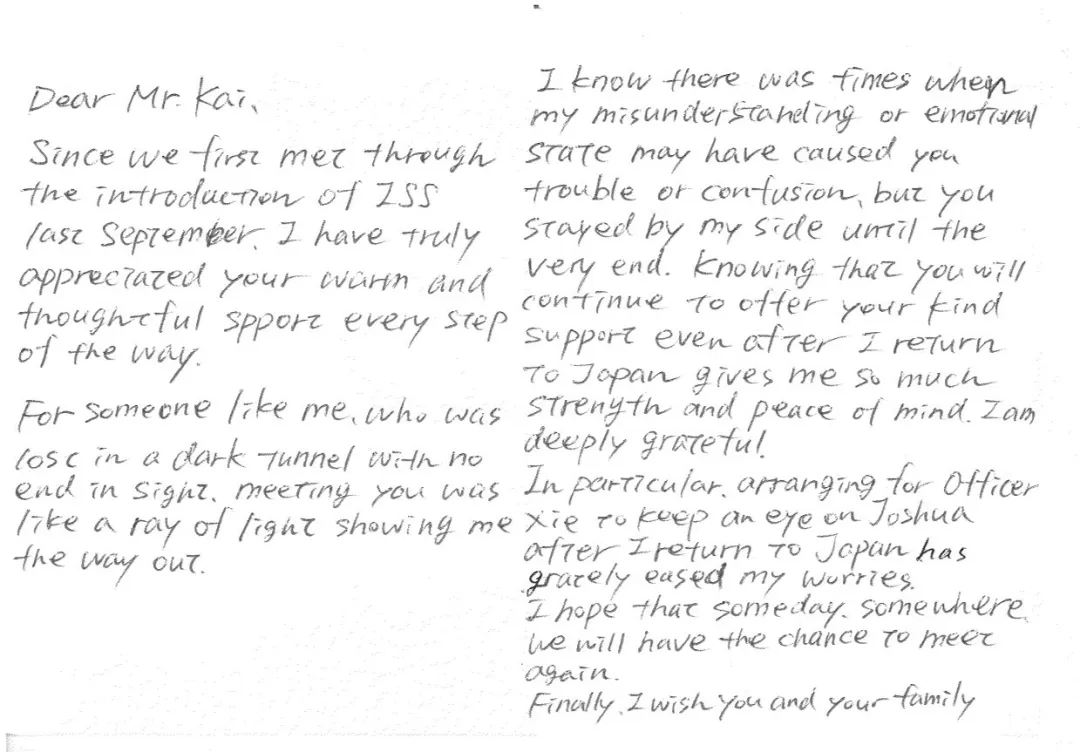 Dear Mr. Kai,
Since we first met through
the introduction of ISS
last September. I have truly
appreciated your warm and
thoughtful spport every step
of the way.
For someone like me, who was
lost in a dark tunnel with no
end in sight. meeting you was
like a ray of light showing me
the way out.
I know there was times when
my misunderstanding or emotional
state may have caused you
trouble or confusion, but you
stayed by my side until the
very end. Knowing that you will
continue to offer your kind
support even after I return
to Japan gives me so much
strength and peace of mind. I am
deeply grateful.
In particular, arranging for Officer
Xie to keep an eye on Joshua
after I return to Japan has
grately eased my worries.
I hope that someday, somewhere
we will have the chance to meet
again.
Finally, I wish you and your family